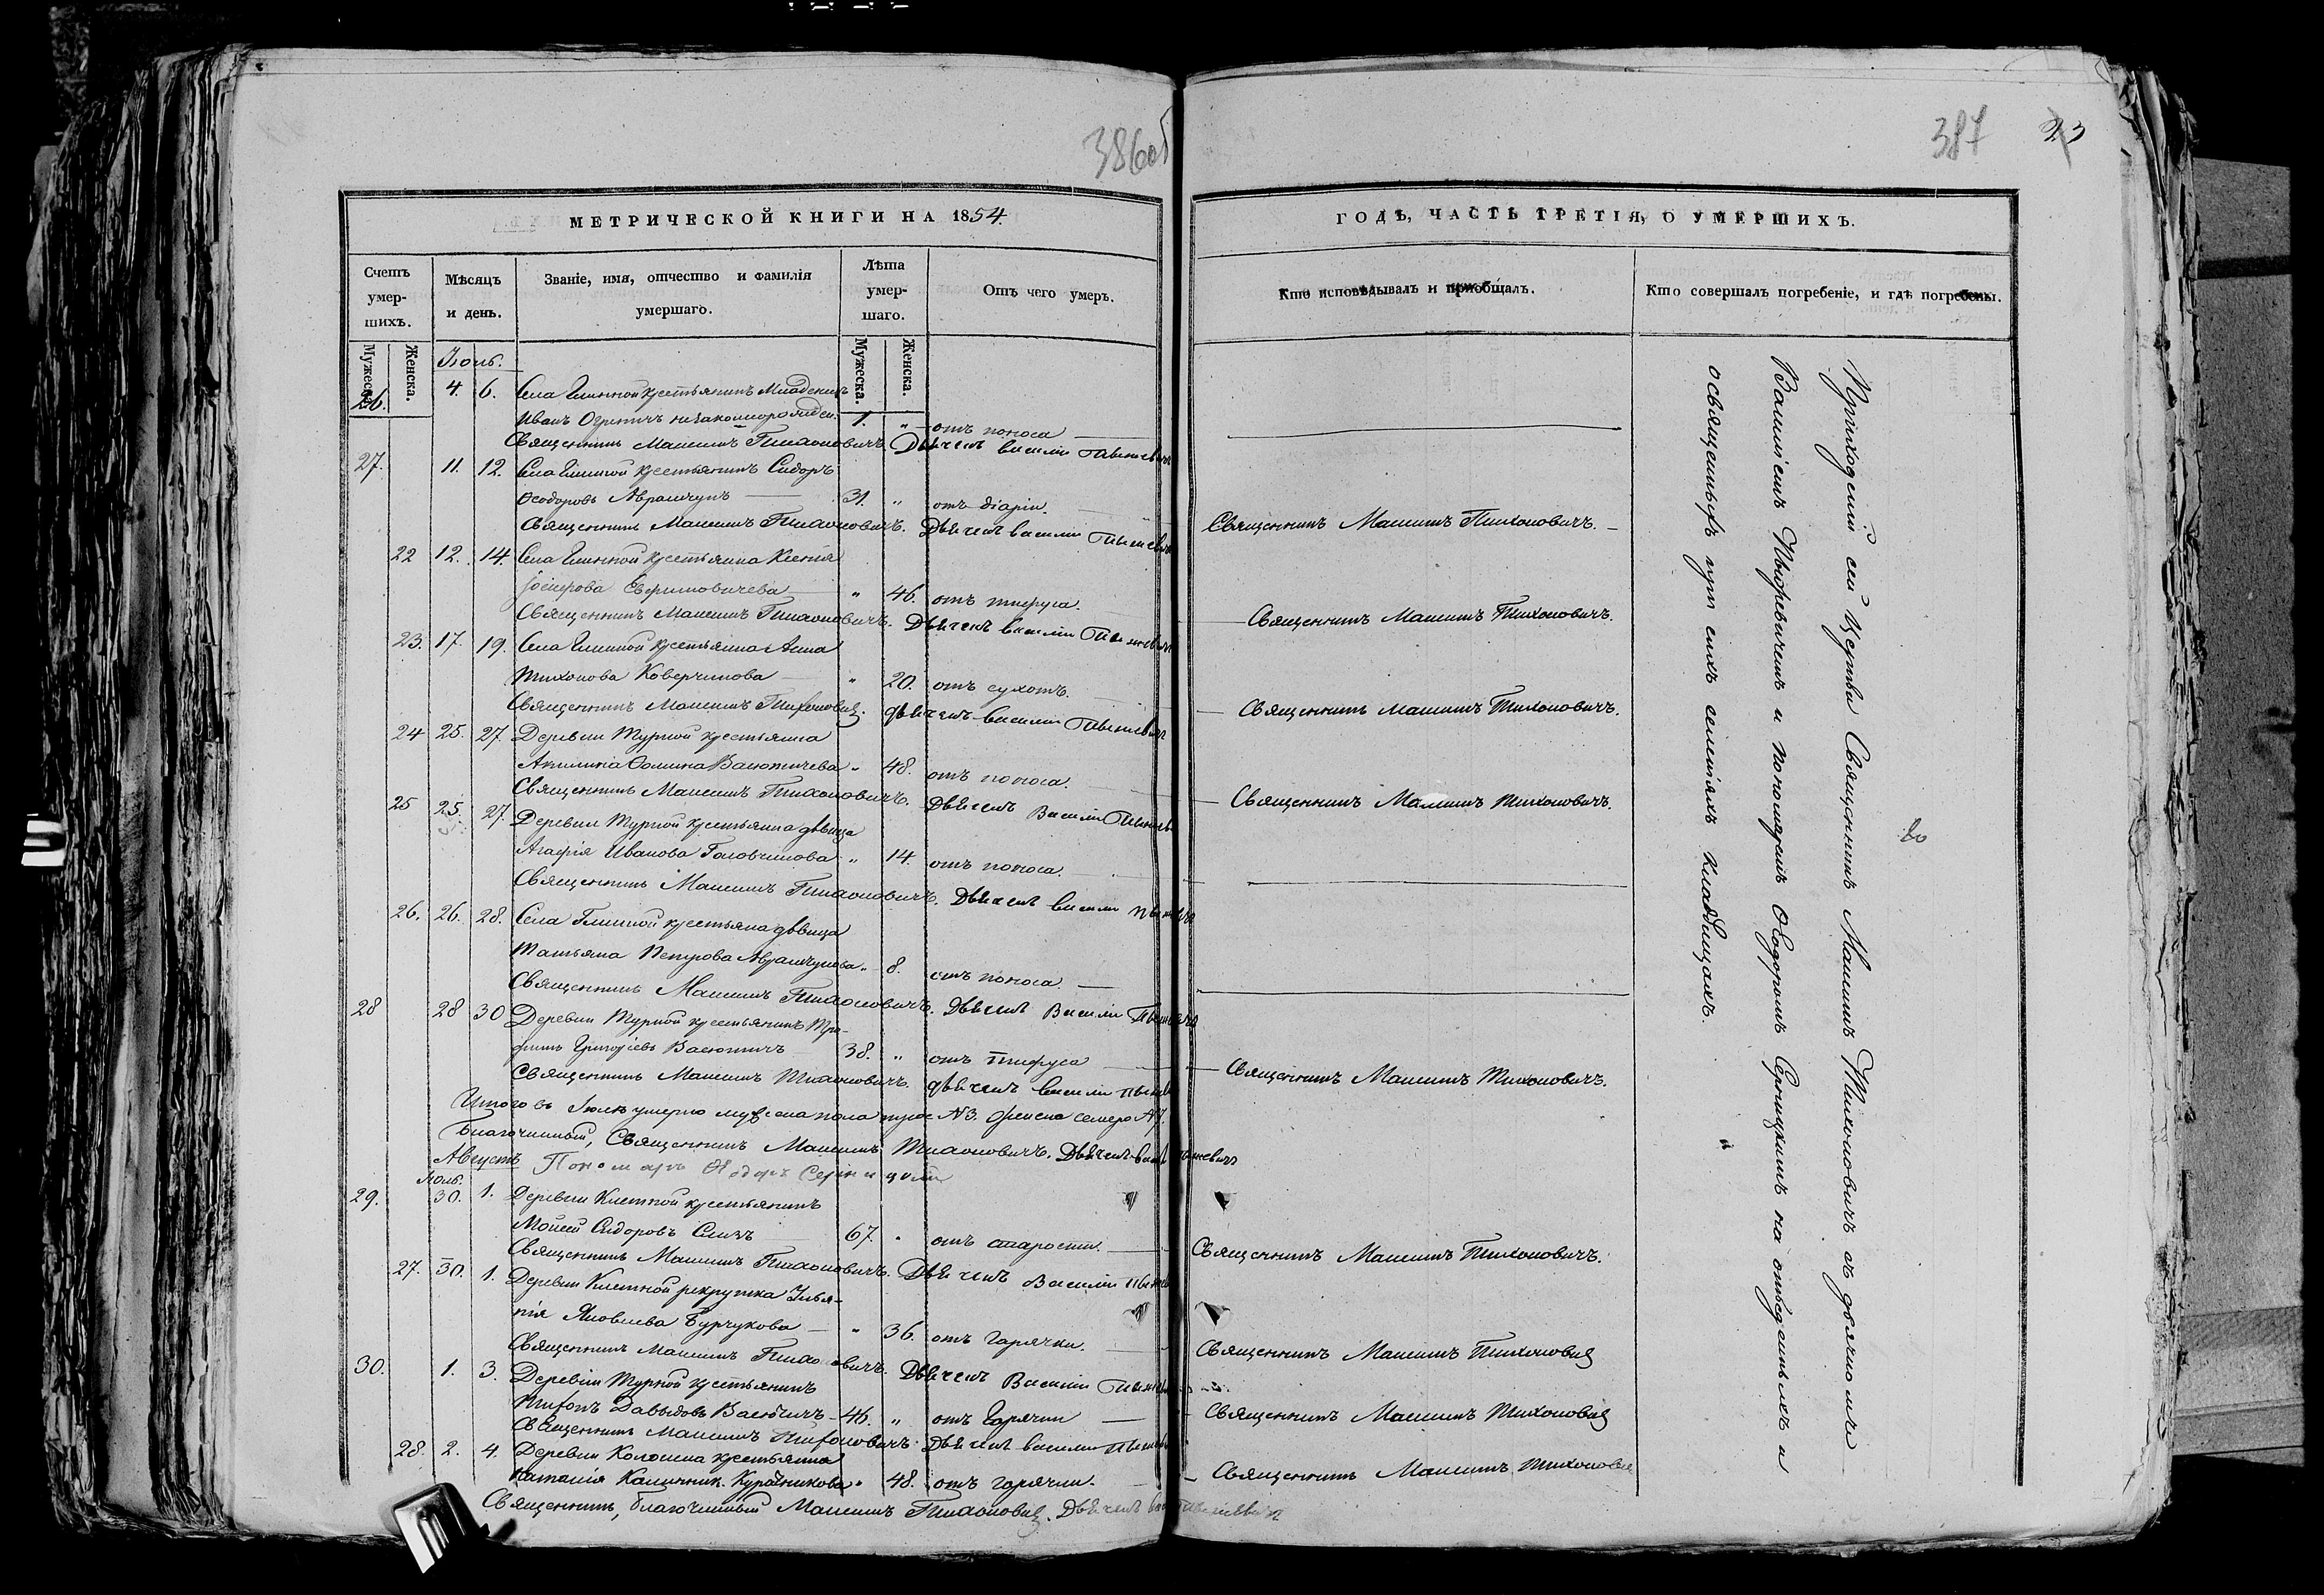 386об
МЕТРИЧЕСКОЙ КНИГИ НА 1854.
Счетъ умер-шихъ.
Мѣсяцъ и день.
Званіе, имя, отчество и фамилія умершаго.
Лѣта умер-шаго.
Отъ чего умеръ.
Мужеска. Женска.
Мужеска. Женска.
Іюль.
26. 4. 6. Села Глинной крестьянинъ Младенецъ
Иванъ незаконнорожден. 1. " отъ поноса
Священникъ Максимъ Тихоновичъ. Дьячекъ Василій
27. 11. 12. Села Глинной крестьянинъ Сидоръ
Ѳеодоровъ Аврамчукъ 31. " отъ діаріи.
Священникъ Максимъ Тихоновичъ. Дьячекъ Василій
22 12. 14. Села Глинной крестьянка Ксенія
Евфимовичева " 46. отъ тифуса.
Священникъ Максимъ Тихоновичъ. Дьячекъ Василій
23. 17. 19. Села Глинной крестьянка Анна
Тихонова Коверчикова " 20. отъ сухотъ.
Священникъ Максимъ Тихоновичъ. Дьячекъ Василій
24 25. 27. Деревни Турной крестьянка
Акилина Ѳомина Васютичева " 48. отъ поноса.
Священникъ Максимъ Тихоновичъ. Дьячекъ Василій
25 25. 27. Деревни Турной крестьянка дѣвица
Агафія Иванова Головчикова " 14. отъ поноса.
Священникъ Максимъ Тихоновичъ. Дьячекъ Василій
26. 26. 28. Села Глинной крестьянка дѣвица
Татьяна Петрова Аврамчукова " 8. отъ поноса.
Священникъ Максимъ Тихоновичъ. Дьячекъ Василій
28 28 30 Деревни Турной крестьянинъ Тро-
фимъ Григорьевъ Васютичъ 38. " отъ Тифуса
Священникъ Максимъ Тихоновичъ. Дьячекъ Василій
Итого въ Іюлѣ умерло мужеска пола трое №3. женска семеро №7.
Благочинный, Священникъ Максимъ Тихоновичъ. Дьячекъ
Августъ Пономарь
Іюль.
29. 30. 1. Деревни Клетной крестьянинъ
Моисей Сидоровъ 67. " отъ старости.
Священникъ Максимъ Тихоновичъ. Дьячекъ Василій
27. 30. 1. Деревни Клетной рекрутка Улья-
нія Яковлева Бурчукова " 36. отъ Горячки.
Священникъ Максимъ Тихоновичъ. Дьячекъ Василій
30. 1. 3. Деревни Турной крестьянинъ
Тихонъ Давыдовъ Васютичъ 46. " отъ Горячки
Священникъ Максимъ Тихоновичъ. Дьячекъ Василій
28. 2. 4. Деревни крестьянка
Наталія Курайникова " 48. отъ горячки.
Священникъ, благочинный Максимъ Тихоновичъ. Дьячекъ
387 23
ГОДЪ, ЧАСТЬ ТРЕТІЯ, О УМЕРШИХЪ.
Кто исповѣдывалъ и пріобщалъ.
Кто совершалъ погребеніе, и гдѣ погребены.
Священникъ Максимъ Тихоновичъ.
Священникъ Максимъ Тихоновичъ.
Священникъ Максимъ Тихоновичъ.
Священникъ Максимъ Тихоновичъ.
Священникъ Максимъ Тихоновичъ.
Священникъ Максимъ Тихоновичъ.
Священникъ Максимъ Тихоновичъ
Священникъ Максимъ Тихоновичъ
Священникъ Максимъ Тихоновичъ
Приходскій сей Церкви Священникъ Максимъ Тихоновичъ съ дьячкомъ
Василіемъ и пономаремъ Ѳеодоромъ на отведенныхъ и
освященныхъ при сихъ селеніяхъ кладбищахъ.